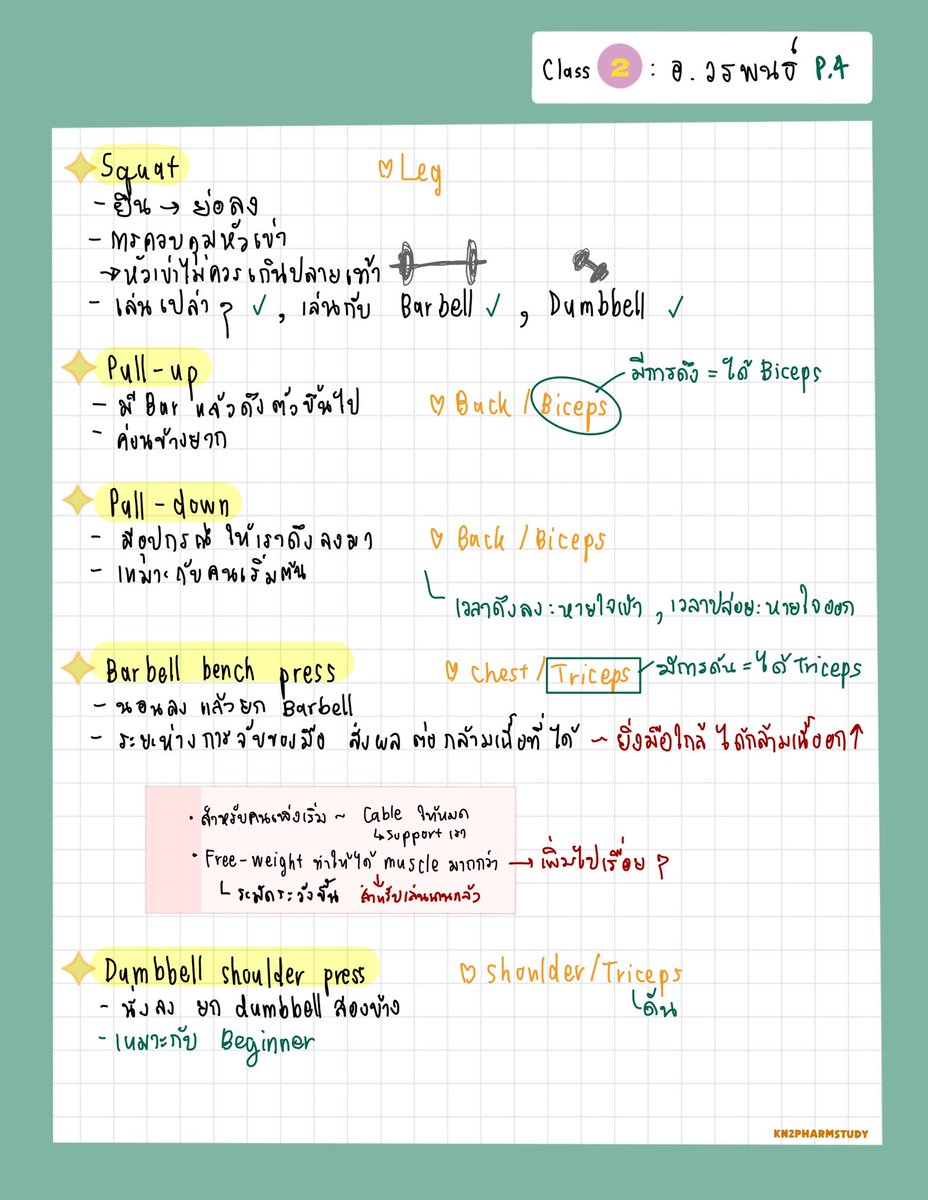 Class 2 : อ. วรพนธ์ P.4
Squat ♡ Leg
- ยืน → ย่อลง
- การควบคุมหัวเข่า
→ หัวเข่าไม่ควรเกินปลายเท้า
- เล่นเปล่า ๆ ✓, เล่นกับ Barbell ✓, Dumbbell ✓
Pull-up
มีการดึง = ได้ Biceps
- มี Bar แล้วดึงตัวขึ้นไป ♡ Back / Biceps
- ค่อนข้างยาก
Pull-down
- มีอุปกรณ์ ให้เราดึงลงมา ♡ Back / Biceps
- เหมาะกับคนเริ่มต้น
เวลาดึงลง : หายใจเข้า , เวลาปล่อย : หายใจออก
Barbell bench press ♡ chest / Triceps มีการดัน = ได้ Triceps
- นอนลง แล้วยก Barbell
- ระยะห่างการจับของมือ ส่งผลต่อกล้ามเนื้อที่ได้ ~ ยิ่งมือใกล้ ได้กล้ามเนื้ออก ↑
• สำหรับคนเพิ่งเริ่ม ~ Cable ให้หมด
↳ support เรา
• Free-weight ทำให้ได้ muscle มากกว่า → เพิ่มไปเรื่อย ๆ
↳ ระมัดระวังขึ้น สำหรับเล่นนานแล้ว
Dumbbell shoulder press ♡ shoulder / Triceps
- นั่งลง ยก dumbbell สองข้าง ↳ ดัน
- เหมาะกับ Beginner
KN2PHARMSTUDY